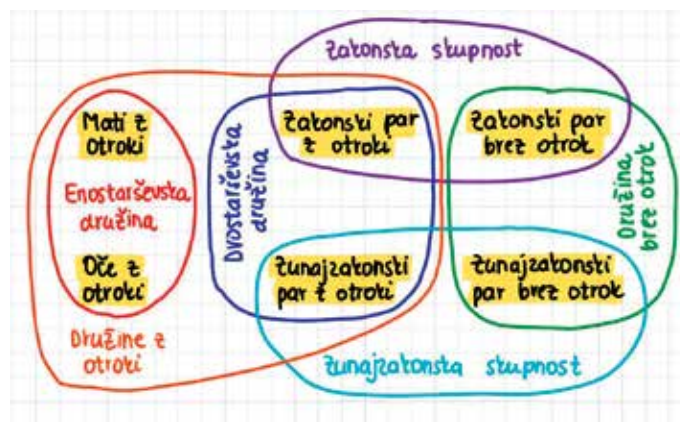 Zakonska skupnost
Mati z
otroki
Enostarševska
družina
Oče z
otroki
Družine z
otroki
Dvostarševska
družina
Zakonski par
z otroki
Zunajzakonski
par z otroki
Zakonski par
brez otrok
Zunajzakonski
par brez otrok
Družina
brez otrok
Zunajzakonska skupnost